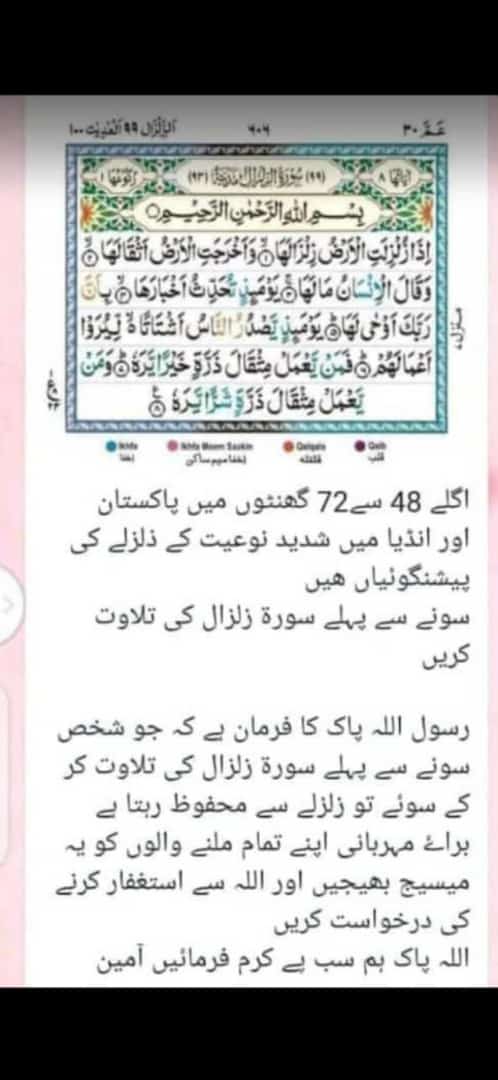 عَمَّ ۳۰
۶۰۶
اَلزِّلْزَال ۹۹ اَلْعٰدِيٰت ۱۰۰
اٰيَاتُهَا ۸
(۹۹) سُوْرَةُ الزِّلْزَالِ مَدَنِيَّةٌ (۹۳)
رُكُوْعُهَا ۱
بِسْمِ اللّٰهِ الرَّحْمٰنِ الرَّحِيْمِ
اِذَا زُلْزِلَتِ الْاَرْضُ زِلْزَالَهَا ۝۱ وَاَخْرَجَتِ الْاَرْضُ اَثْقَالَهَا ۝۲
وَقَالَ الْاِنْسَانُ مَا لَهَا ۝۳ يَوْمَىِٕذٍ تُحَدِّثُ اَخْبَارَهَا ۝۴ بِاَنَّ
رَبَّكَ اَوْحٰى لَهَا ۝۵ يَوْمَىِٕذٍ يَّصْدُرُ النَّاسُ اَشْتَاتًا ۙ لِّيُرَوْا
اَعْمَالَهُمْ ۝۶ فَمَنْ يَّعْمَلْ مِثْقَالَ ذَرَّةٍ خَيْرًا يَّرَهٗ ۝۷ وَمَنْ
يَّعْمَلْ مِثْقَالَ ذَرَّةٍ شَرًّا يَّرَهٗ ۝۸
Ikhfa
Ikhfa Meem Saakin
Qalqala
Qalb
اخفا
اخفا میم ساکن
قلقلہ
قلب
اگلے 48 سے72 گھنٹوں میں پاکستان
اور انڈیا میں شدید نوعیت کے ذلزلے کی
پیشنگوئیاں ھیں
سونے سے پہلے سورۃ زلزال کی تلاوت
کریں
رسول اللہ پاک کا فرمان ہے کہ جو شخص
سونے سے پہلے سورۃ زلزال کی تلاوت کر
کے سوئے تو زلزلے سے محفوظ رہتا ہے
براۓ مہربانی اپنے تمام ملنے والوں کو یہ
میسیج بھیجیں اور اللہ سے استغفار کرنے
کی درخواست کریں
اللہ پاک ہم سب پے کرم فرمائیں آمین